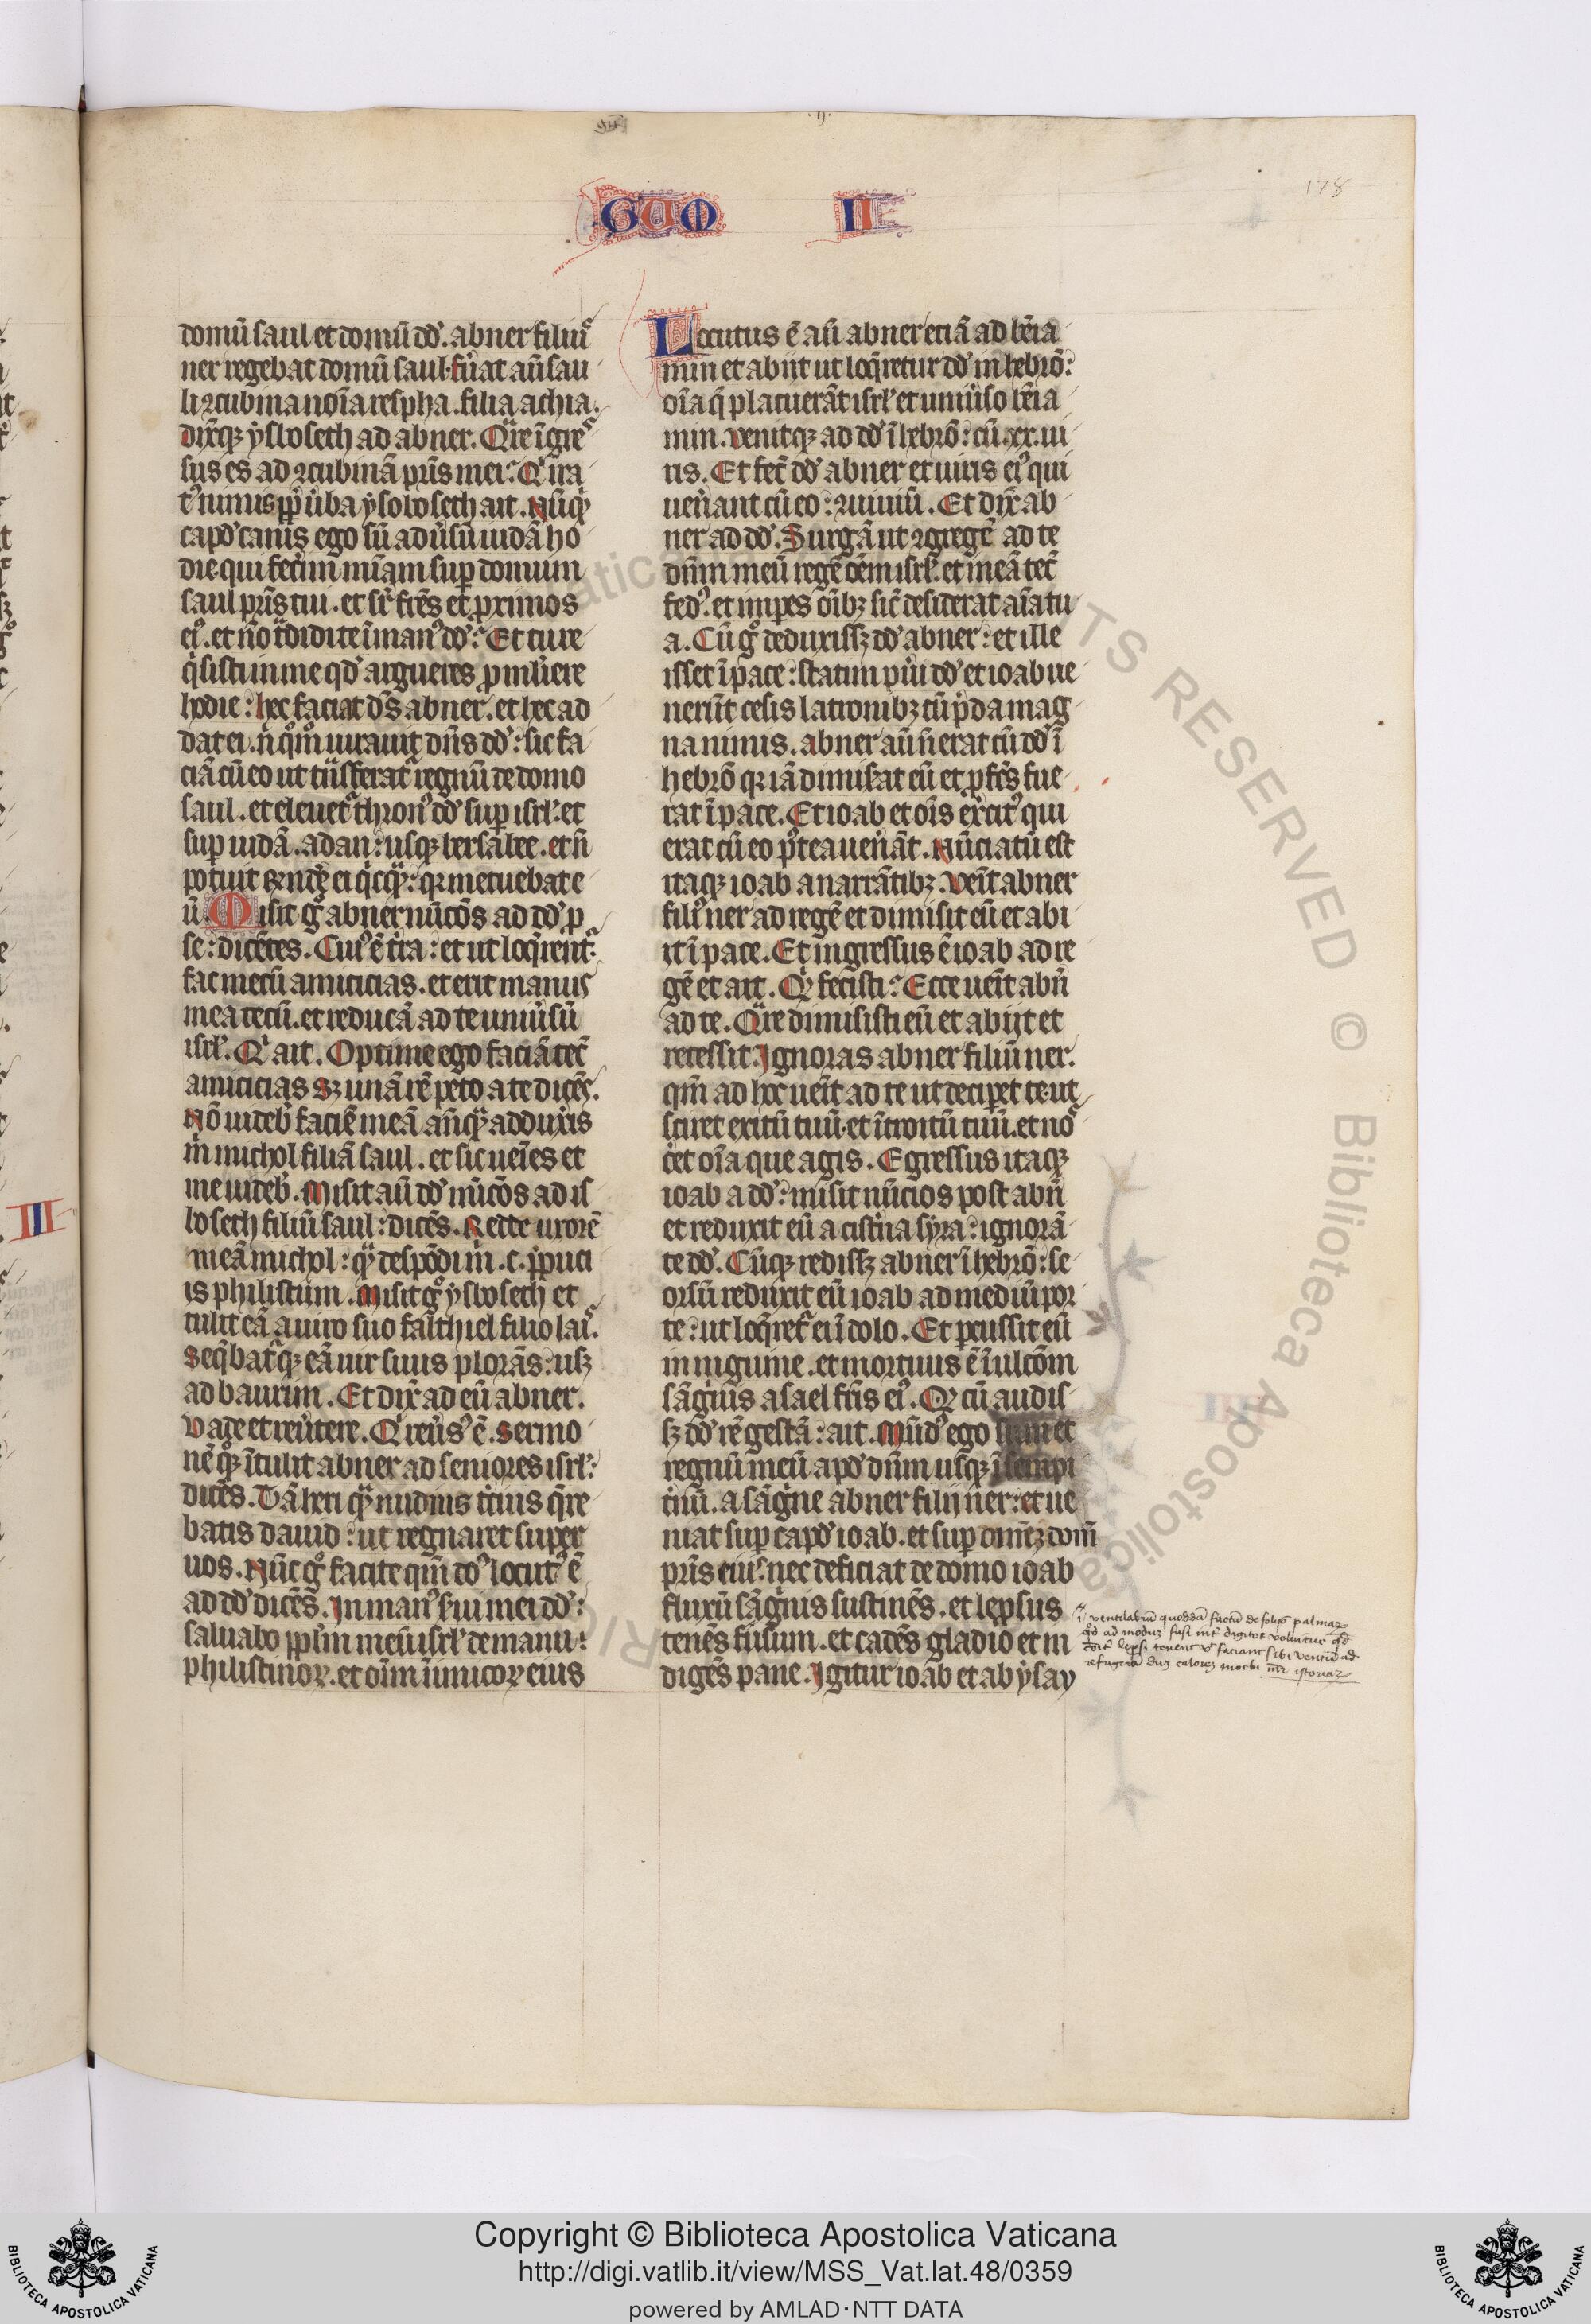 178
GUM II
domū saul et domū dd̕. abner filius
ner regebat domū saul. fu̾at aū sau
li ꝯcubina noīa respha. filia achia.
dix̄qꝫ ysboseth ad abner. Qͣre īgres
sus es ad ꝯcubinā pr̄is mei. Qͥ ira
tꝰ nimis ꝓp̄ u̾ba ysboseth ait. Nūqͥd
capd̕ canis ego sū adu̾sū iudā ho
die qui fecim̄ miāꝫ sup̱ domum
saul pr̄is tui. et sr̄ fr̄es et ꝓximos
eiꝰ. et nō tͣdidi te ī manꝰ dd̕. Et tu re
qͥsisti in me qd̕ argueres ꝓ mu̾liere
hodie: hec faciat ds̄ abner. et hec ad
dat ei. nͥ qͦm̄ iurauit dn̄s dd̕: sic fa
ciā cū eo ut tͣnsferatͬ regnū de domo
saul. et eleuetͬ thronꝰ dd̕ sup̱ isrl̕. et
sup̱ iudā. a dan: usqꝫ bersabee. et nͦ
potuit rn̄dē̾ ei qͥcqͣꝫ: qꝛ metuebat e
ū. Misit gͦ abner nūcōs ad dd̕ ꝓ
se: dicētes. Cuiꝰ ē tr̄a: et ut loqͥrentͬ.
fac mecū amicicias. et erit manus
mea tecū. et reducā ad te uniu̾sū
isrl̕. Qͥ ait. Optime ego faciā tec̄
amicicias sꝫ unā rē peto a te dicēs.
Nō uideb̾ faciē meā an̄qͣꝫ adduxis
m̄ michol filiā saul. et sic ueīes et
me uideb̾. Misit aū dd̕ nūcōs ad is
boseth filiū saul: dicēs. Redde uxorē
meā michol: qͣꝫ despōdi m̄. c. p̄puci
is philistim. Misit gͦ ysboseth et
tulit eā a uiro suo falthiel filio lais.
Seqͣbatͬqꝫ eā uir suus plorās: usqꝫ
ad baurim. Et dix̄ ad eū abner.
Vade et reu̾tere. Qͥ reu̾sꝰ ē. Sermo
nē qͦqꝫ ītulit abner ad seniores isrl̕:
dicēs. Tā heri qͣꝫ nudius tc̾ius qͣre
batis dauid: ut regnaret super
uos. Nūc gͦ facite qm̄ dōꝰ locutꝰ ē
ad dd̕ dicēs. In manꝰ su̾i mei dd̕:
saluabo ppl̄m meū isrl̕ de manu:
philistinoꝝ. et oīm īimicoꝝ eius
Locutus ē aū abner etiā ad bēia
min et abiit ut loqͣretur dd̕ in hebrō:
oīa qͣ placuerāt isrl̕ et uniu̾so bēia
min. Venitqꝫ ad dd̕ ī hebrō: cū. xx. ui
ris. Et fec̄ dd̕ abner et uiris eiꝰ qui
uen̾ant cū eo: ꝯuiuiū. Et dix̄ ab
ner ad dd̕. Surgā ut ꝯgregē ad te
dn̄m meū regē oēm isrl̕. et ineā tec̄
fedꝰ. et imp̱es oībꝫ sic̄ desiderat aīa tu
a. Cū gͦ deduxissꝫ dd̕ abner: et ille
isset ī pace: statim pu̾i dd̕ et ioab ue
nerūt cesis latronibꝫ cū p̄da mag
na nimis. abner aū nͦ erat cū dd̕ ī
hebrō qꝛ iā dimis̾at eū et ꝓfcs̄ fue
rat ī pace. Et ioab et oīs exc̾itꝰ qui
erat cū eo pꝰtea uen̾āt. Nūciatū est
itaqꝫ ioab a narrātibꝫ. Venīt abner
filiꝰ ner ad regē et dimisit eū et abi
it ī pace. Et ingressus ē ioab ad re
gē et ait. Qͥd fecisti. Ecce uenīt abn̾
ad te. Qͣre dimisisti eū et abijt et
recessit. Ignoras abner filiū ner.
qm̄ ad hoc uenīt ad te ut decip̱et te. ut
sciret exitū tuū. et ītroitū tuū. et nos
c̾et oīa que agis. Egressus itaqꝫ
ioab a dd̕: misit nūcios post abn̾
et reduxit eū a cist̾na syra: ignorā
te dd̕. Cūqꝫ redissꝫ abner ī hebrō: se
orsū reduxit eū ioab ad mediū por
te: ut loqͣretͬ ei ī dolo. Et p̱cussit eū
in inguine. et mortuus ē ī ulcōm
sāgͥnis asael fr̄is eiꝰ. Qd̕ cū audis
sꝫ dd̕ rē gestā: ait. Mūdꝰ ego sum et
regnū meū apd̕ dn̄m usqꝫ ī sempi
t̾nū. a sāgͥne abner filij ner: et ue
niat sup̱ capd̕ ioab. et sup̱ omēꝫ domū
pr̄is eius: nec deficiat de domo ioab
fluxū sāgͥnis sustinēs. et lep̱sus
tenēs fusum. et cadēs gladio et in
digēs pane. Igitur ioab et abysay
.i. ventilabrū quoddā factū de foliis palmaꝝ
qd̕ ad moduꝫ fusi int̾ digitos voluitur qd̕
lep̱si tenent ut faciant sibi ventū ad
refugeriū calorē morbi istoriaꝝ
III
Copyright © Biblioteca Apostolica Vaticana
http://digi.vatlib.it/view/MSS_Vat.lat.48/0359
powered by AMLAD·NTT DATA
BIBLIOTECA APOSTOLICA VATICANA
BIBLIOTECA APOSTOLICA VATICANA